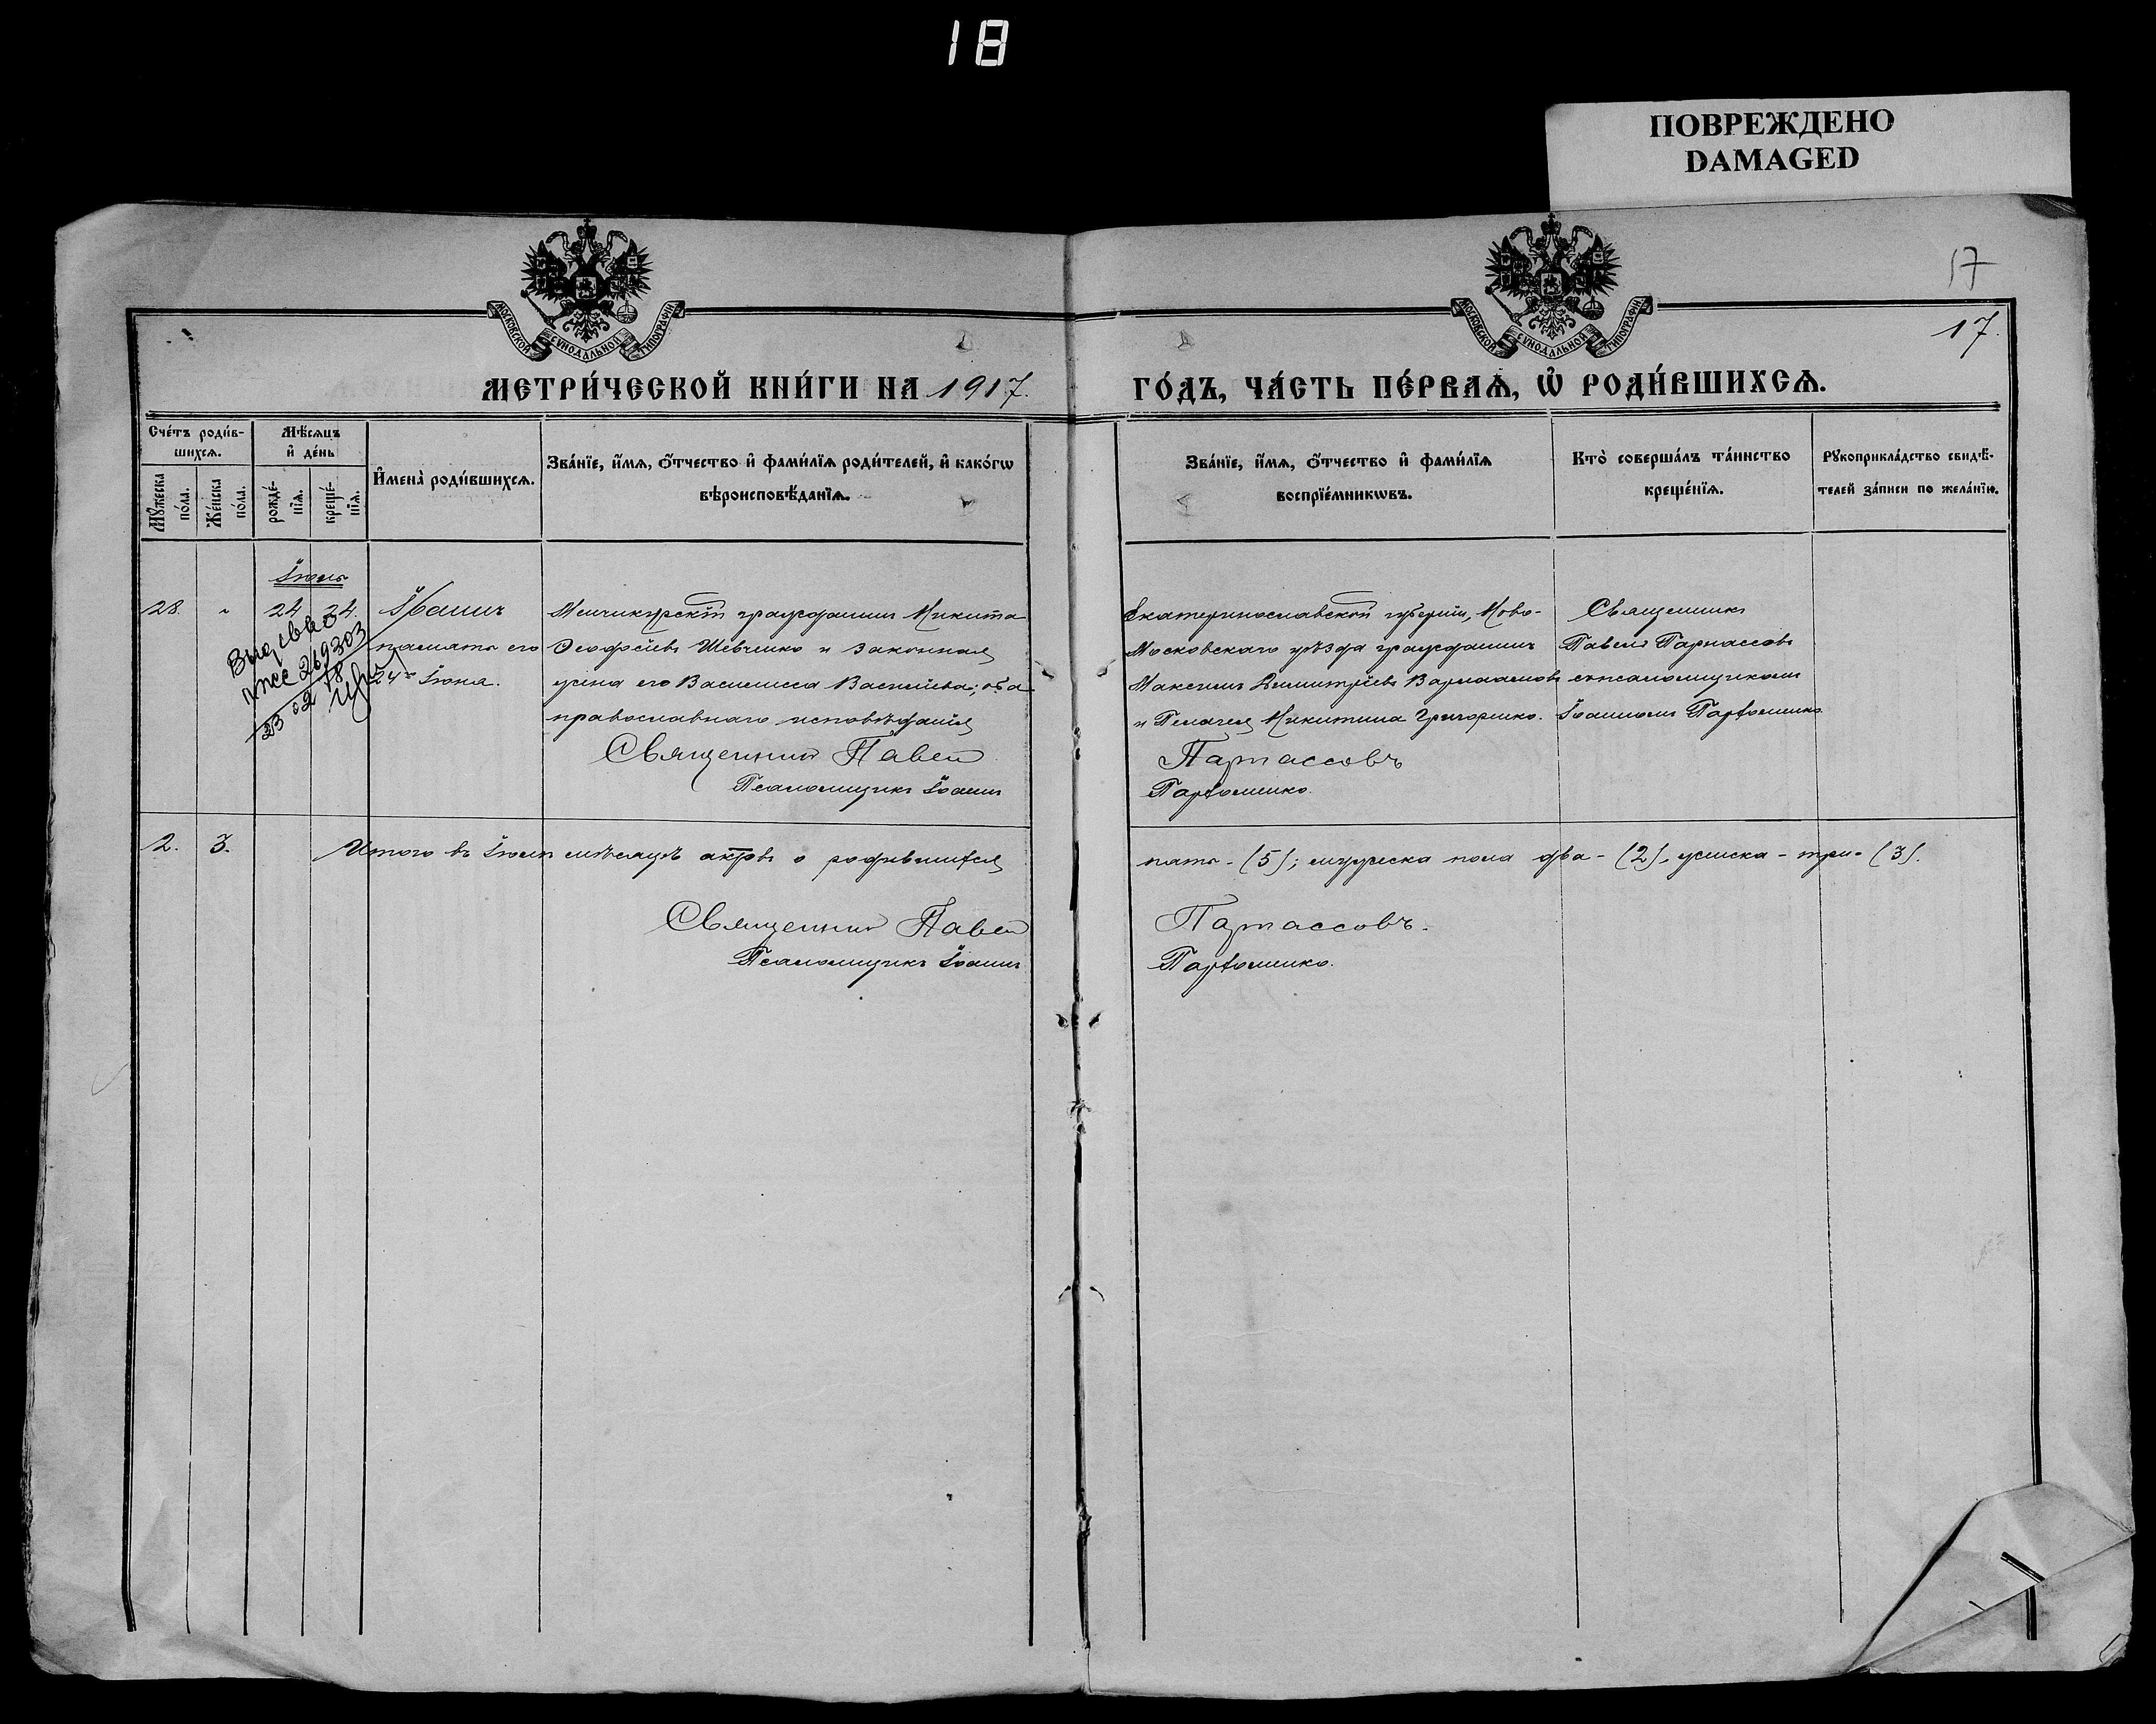 18
ПОВРЕЖДЕНО
DAMAGED
17
17.
МОСКОВСКОЙ СѴНОДАЛЬНОЙ ТИПОГРАФІИ
МОСКОВСКОЙ СѴНОДАЛЬНОЙ ТИПОГРАФІИ
МЕТРИ́ЧЕСКОЙ КНИ́ГИ НА 1917.
ГО́ДЪ, ЧА́СТЬ ПЕ́РВАѦ, Ѡ҆ РОДИ́ВШИХСѦ.
Сче́тъ роди́в-
шихсѧ.
Мꙋ́жеска по́ла.
Же́нска по́ла.
Мѣ́сѧцъ
и҆ де́нь
рожде́-
нїѧ.
креще́-
нїѧ.
И҆мена̀ роди́вшихсѧ.
Зва́нїе, и҆́мѧ, ѻ҆́тчество и҆ фами́лїѧ роди́телей, и҆ како́гѡ
вѣроисповѣ́данїѧ.
Зва́нїе, и҆́мѧ, ѻ҆́тчество и҆ фами́лїѧ
воспрїе́мникѡвъ.
Кто̀ соверша́лъ та́инство
креще́нїѧ.
Рꙋкоприкла́дство свидѣ́-
телей за́писи по жела́нїю.
Іюнь
28. 24 24. Іоаннъ
память его
24го Іюня.
269303
Менчикурскій гражданинъ Никита
Ѳеодосіевъ Шевченко и законная
жена его Василисса Васильева; оба
православнаго исповѣданія
Священникъ Павелъ
Псаломщикъ Іоаннъ
Екатеринославской губерніи, Ново-
Московскаго уѣзда гражданинъ
Максимъ Димитріевъ Варлаамовъ
и Пелагея Никитина Григоренко.
Парнассовъ
Парѳоменко.
Священникъ
Павелъ Парнассовъ
съ псаломщикомъ
Іоанномъ Парѳоменко
2. 3. Итого въ Іюнѣ мѣсяцѣ актовъ о родившихся
пять - (5); мужеска пола два - (2), женска - три - (3).
Священникъ Павелъ
Псаломщикъ Іоаннъ
Парнассовъ.
Парѳоменко.